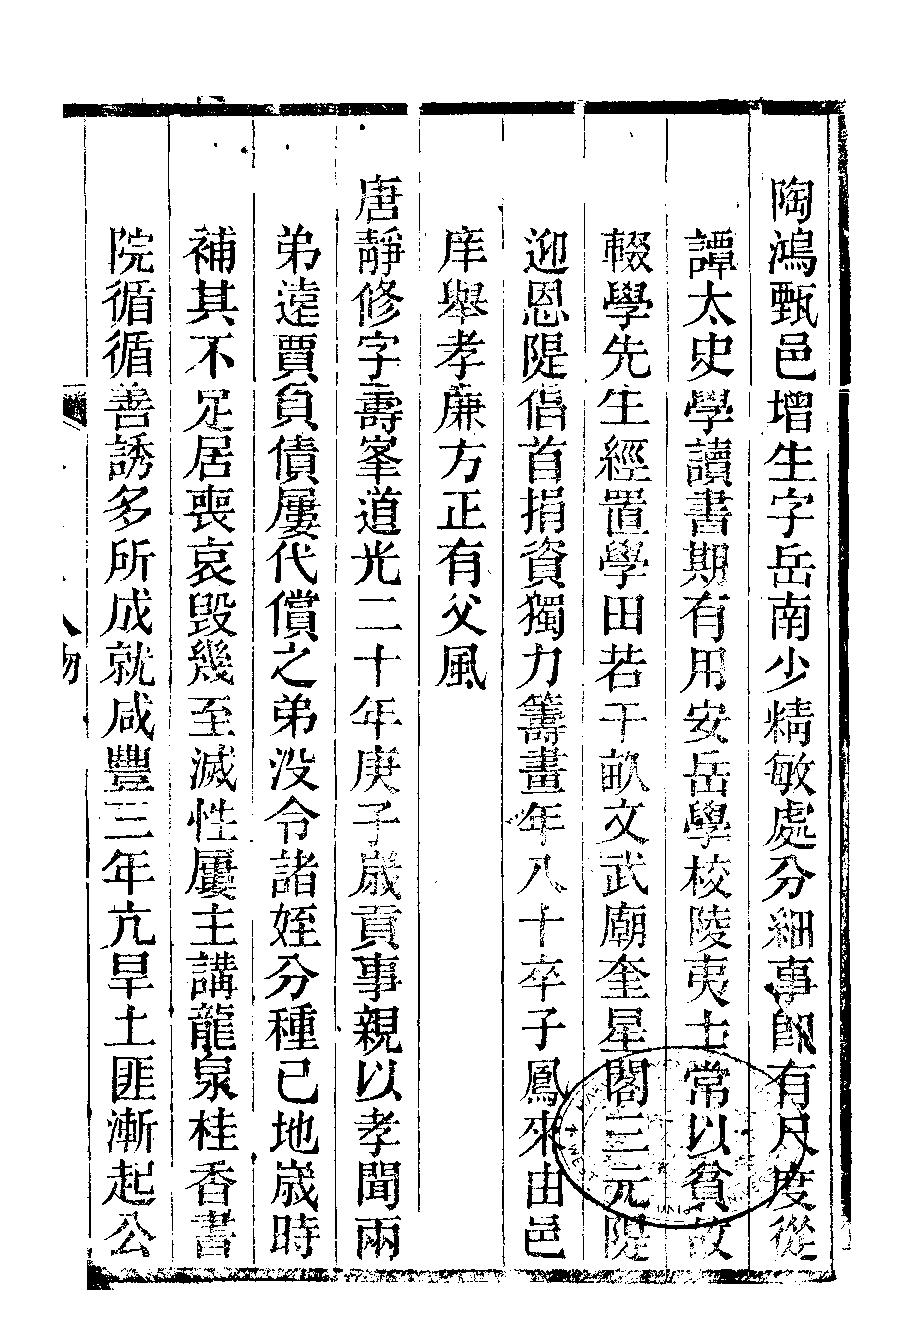 陶鴻甄邑增生字岳南少精敏處分細事卽有尺度從
譚太史學讀書期有用安岳學校陵夷士常以貧故
輟學先生經置學田若干畝文武廟奎星閣三元隄
迎恩隄倡首捐資獨力籌畫年八十卒子鳳來由邑
庠舉孝廉方正有父風
唐靜修字壽峯道光二十年庚子歲貢事親以孝聞兩
弟遠賈負債屢代償之弟没令諸姪分種己地歲時
補其不足居喪哀毀幾至滅性屢主講龍泉桂香書
院循循善誘多所成就咸豐三年亢旱土匪漸起公
人物